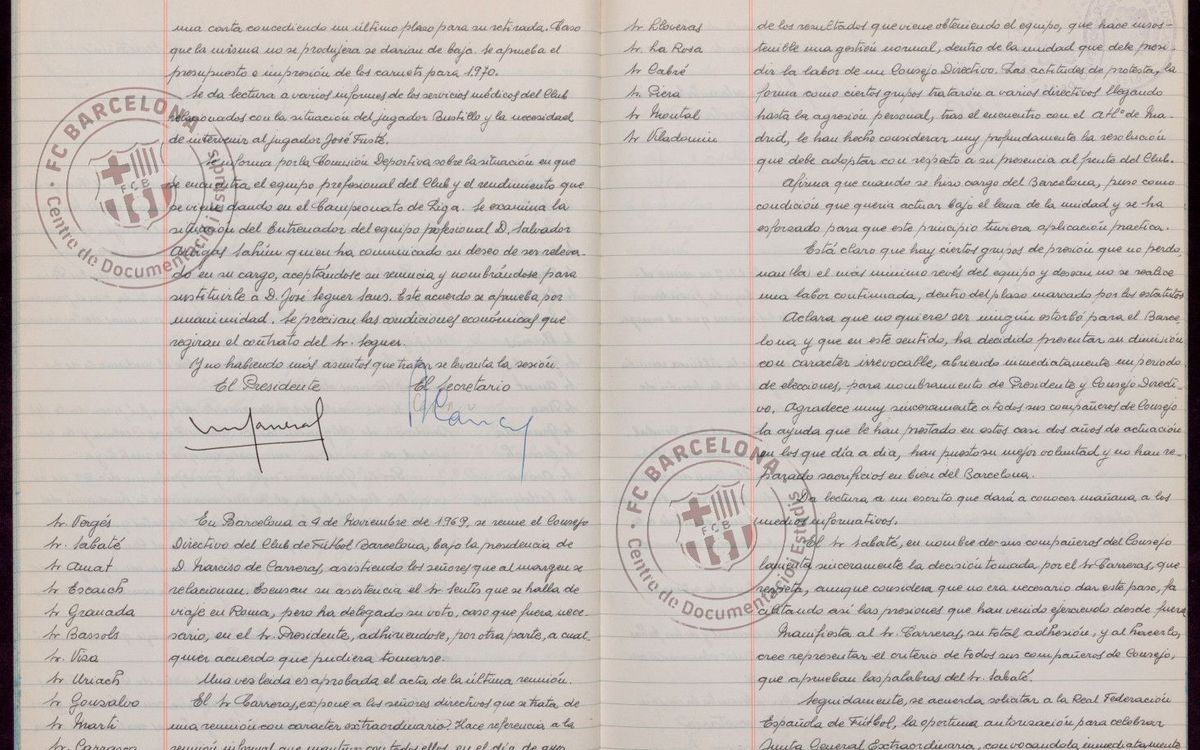 una carta concediendo un último plazo para su retirada. Caso
que la misma no se produjera se darían de baja. Se aprueba el
presupuesto e impresión de los carnets para 1.970.
Se da lectura a varios informes de los servicios médicos del Club
relacionados con la situación del jugador Bustillo y la necesidad
de intervenir al jugador José Fusté.
Se informa por la Comisión Deportiva sobre la situación en que
se encuentra el equipo profesional del Club y el rendimiento que
se viene dando en el Campeonato de Liga. Se examina la
situación del Entrenador del equipo profesional D. Salvador
Artigas Sahún quien ha comunicado su deseo de ser releva-
do en su cargo, aceptándose su renuncia y nombrándose para
sustituirle a D. José Seguer Sans. Este acuerdo se aprueba por
unanimidad. Se precisan las condiciones económicas que
regiran el contrato del Sr. Seguer.
Y no habiendo más asuntos que tratar se levanta la sesión.
El Presidente El Secretario
FC BARCELONA
FCB
Centro de Documentació i Estudis
Sr. Vergés
Sr. Sabaté
Sr. Amat
Sr. Escaich
Sr. Granada
Sr. Bassols
Sr. Visa
Sr. Uriach
Sr. Gonsalvo
Sr. Martí
Sr. Carrasco
En Barcelona a 4 de Noviembre de 1969, se reune el Consejo
Directivo del Club de Fútbol Barcelona, bajo la presidencia de
D. Narciso de Carreras, asistiendo los señores que al margen se
relacionan. Escusan su asistencia el Sr. Sentís que se halla de
viaje en Roma, pero ha delegado su voto, caso que fuera nece-
sario, en el Sr. Presidente, adhiriendose, por otra parte, a cual-
quier acuerdo que pudiera tomarse.
Una vez leida es aprobada el acta de la última reunión.
El Sr. Carreras, expone a los señores directivos que se trata de
una reunión con caracter extraordinario. Hace referencia a la
reunión informal que mantuvo con todos ellos, en el día de ayer
Sr. Lloveras
Sr. La Rosa
Sr. Cabré
Sr. Piera
Sr. Montal
Sr. Viladomiu
de los resultados que viene obteniendo el equipo, que hace insos-
tenible una gestión normal, dentro de la unidad que debe presi-
dir la labor de un Consejo Directivo. Las actitudes de protesta, la
forma como ciertos grupos trataron a varios directivos llegando
hasta la agresión personal, tras el encuentro con el Atlº de Ma-
drid, le han hecho considerar muy profundamente la resolución
que debe adoptar con respecto a su presencia al frente del Club.
Afirma que cuando se hizo cargo del Barcelona, puso como
condición que quería actuar bajo el lema de la unidad y se ha
esforzado para que este principio tuviera aplicación practica.
Está claro que hay ciertos grupos de presión que no perdo-
nan el más minimo revés del equipo y desean no se realice
una labor continuada, dentro del plazo marcado por los estatutos
Aclara que no quiere ser ningún estorbo para el Barce-
lona y que en este sentido, ha decidido presentar su dimisión
con caracter irrevocable, abriendo inmediatamente un periodo
de elecciones, para nombramiento de Presidente y Consejo Directi-
vo. Agradece muy sinceramente a todos sus compañeros de Consejo
la ayuda que le han prestado en estos casi dos años de actuación
en los que día a día, han puesto su mejor voluntad y no han re-
parado sacrificios en bien del Barcelona.
Da lectura a un escrito que dará a conocer mañana a los
medios informativos.
El Sr. Sabaté, en nombre de sus compañeros del Consejo
lamenta sinceramente la decisión tomada, por el Sr. Carreras, que
respeta, aunque considera que no era necesario dar este paso, fa-
cilitando así las presiones que han venido ejerciendo desde fuera
Manifiesta al Sr. Carreras, su total adhesión, y al hacerlo,
cree representar el criterio de todos sus compañeros de Consejo,
que aprueban las palabras del Sr. Sabaté.
Seguidamente, se acuerda solicitar a la Real Federación
Española de Fútbol, la oportuna autorización para celebrar
Junta General Extraordinaria, convocandose inmediatamente
FC BARCELONA
FCB
Centro de Documentació i Estudis